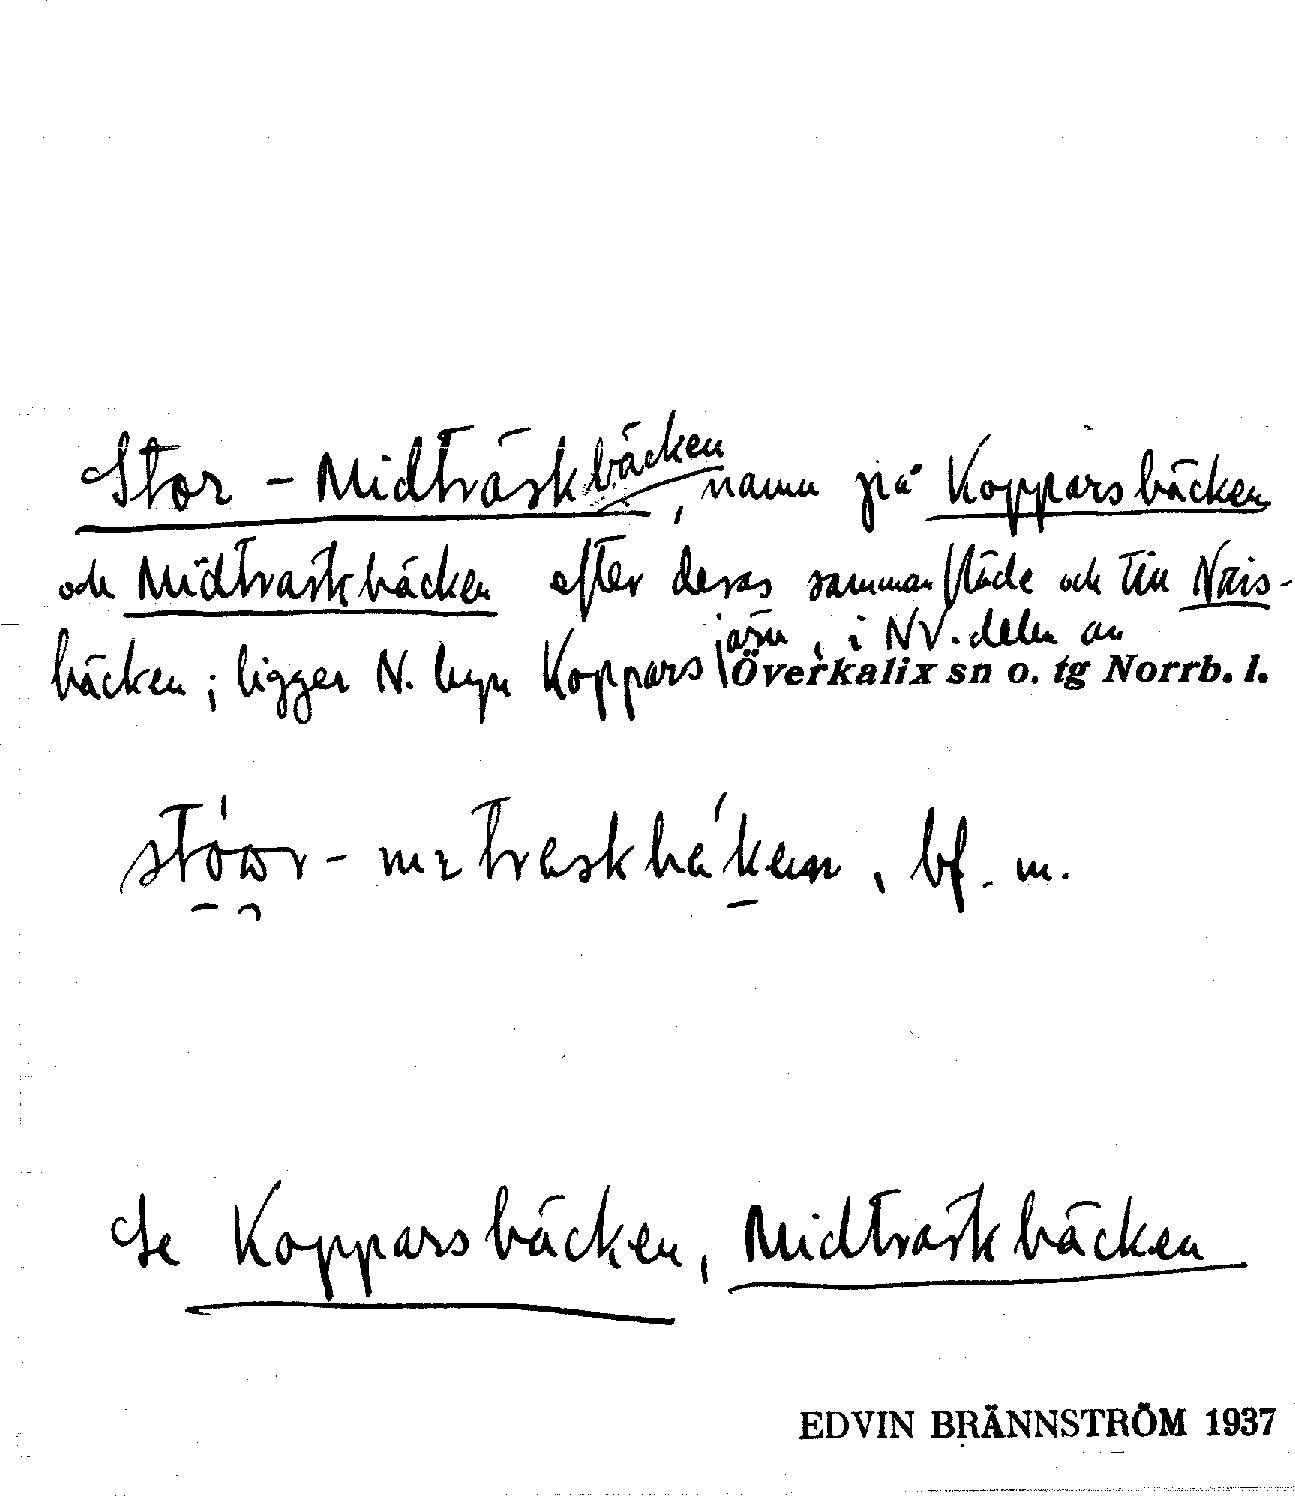 Stor-Midträskbäcken, namn på Kopparsbäcken
och Midträskbäcken efter deras sammanflöde och till Näis-
bäcken; ligger N. byn Kopparsjärn, i NV. delen av
Överkalix sn o. tg Norrb. l.
bf. m.
Se Kopparsbäcken, Midträskbäcken
EDVIN BRÄNNSTRÖM 1937